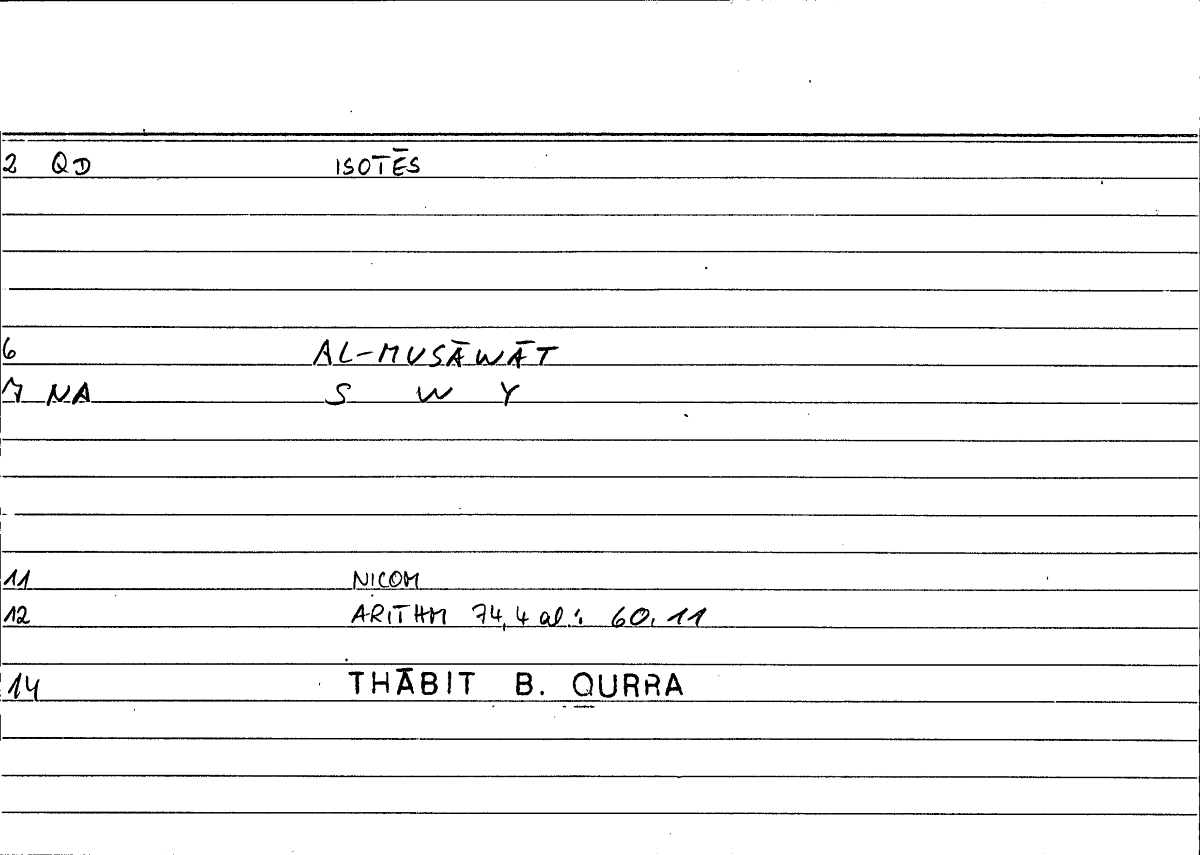 2 QD ISOTĒS
6 AL-MUSĀWĀT
7 NA S W Y
11 NICOM
12 ARITHM 74,4 al.: 60.11
14 THĀBIT B. QURRA